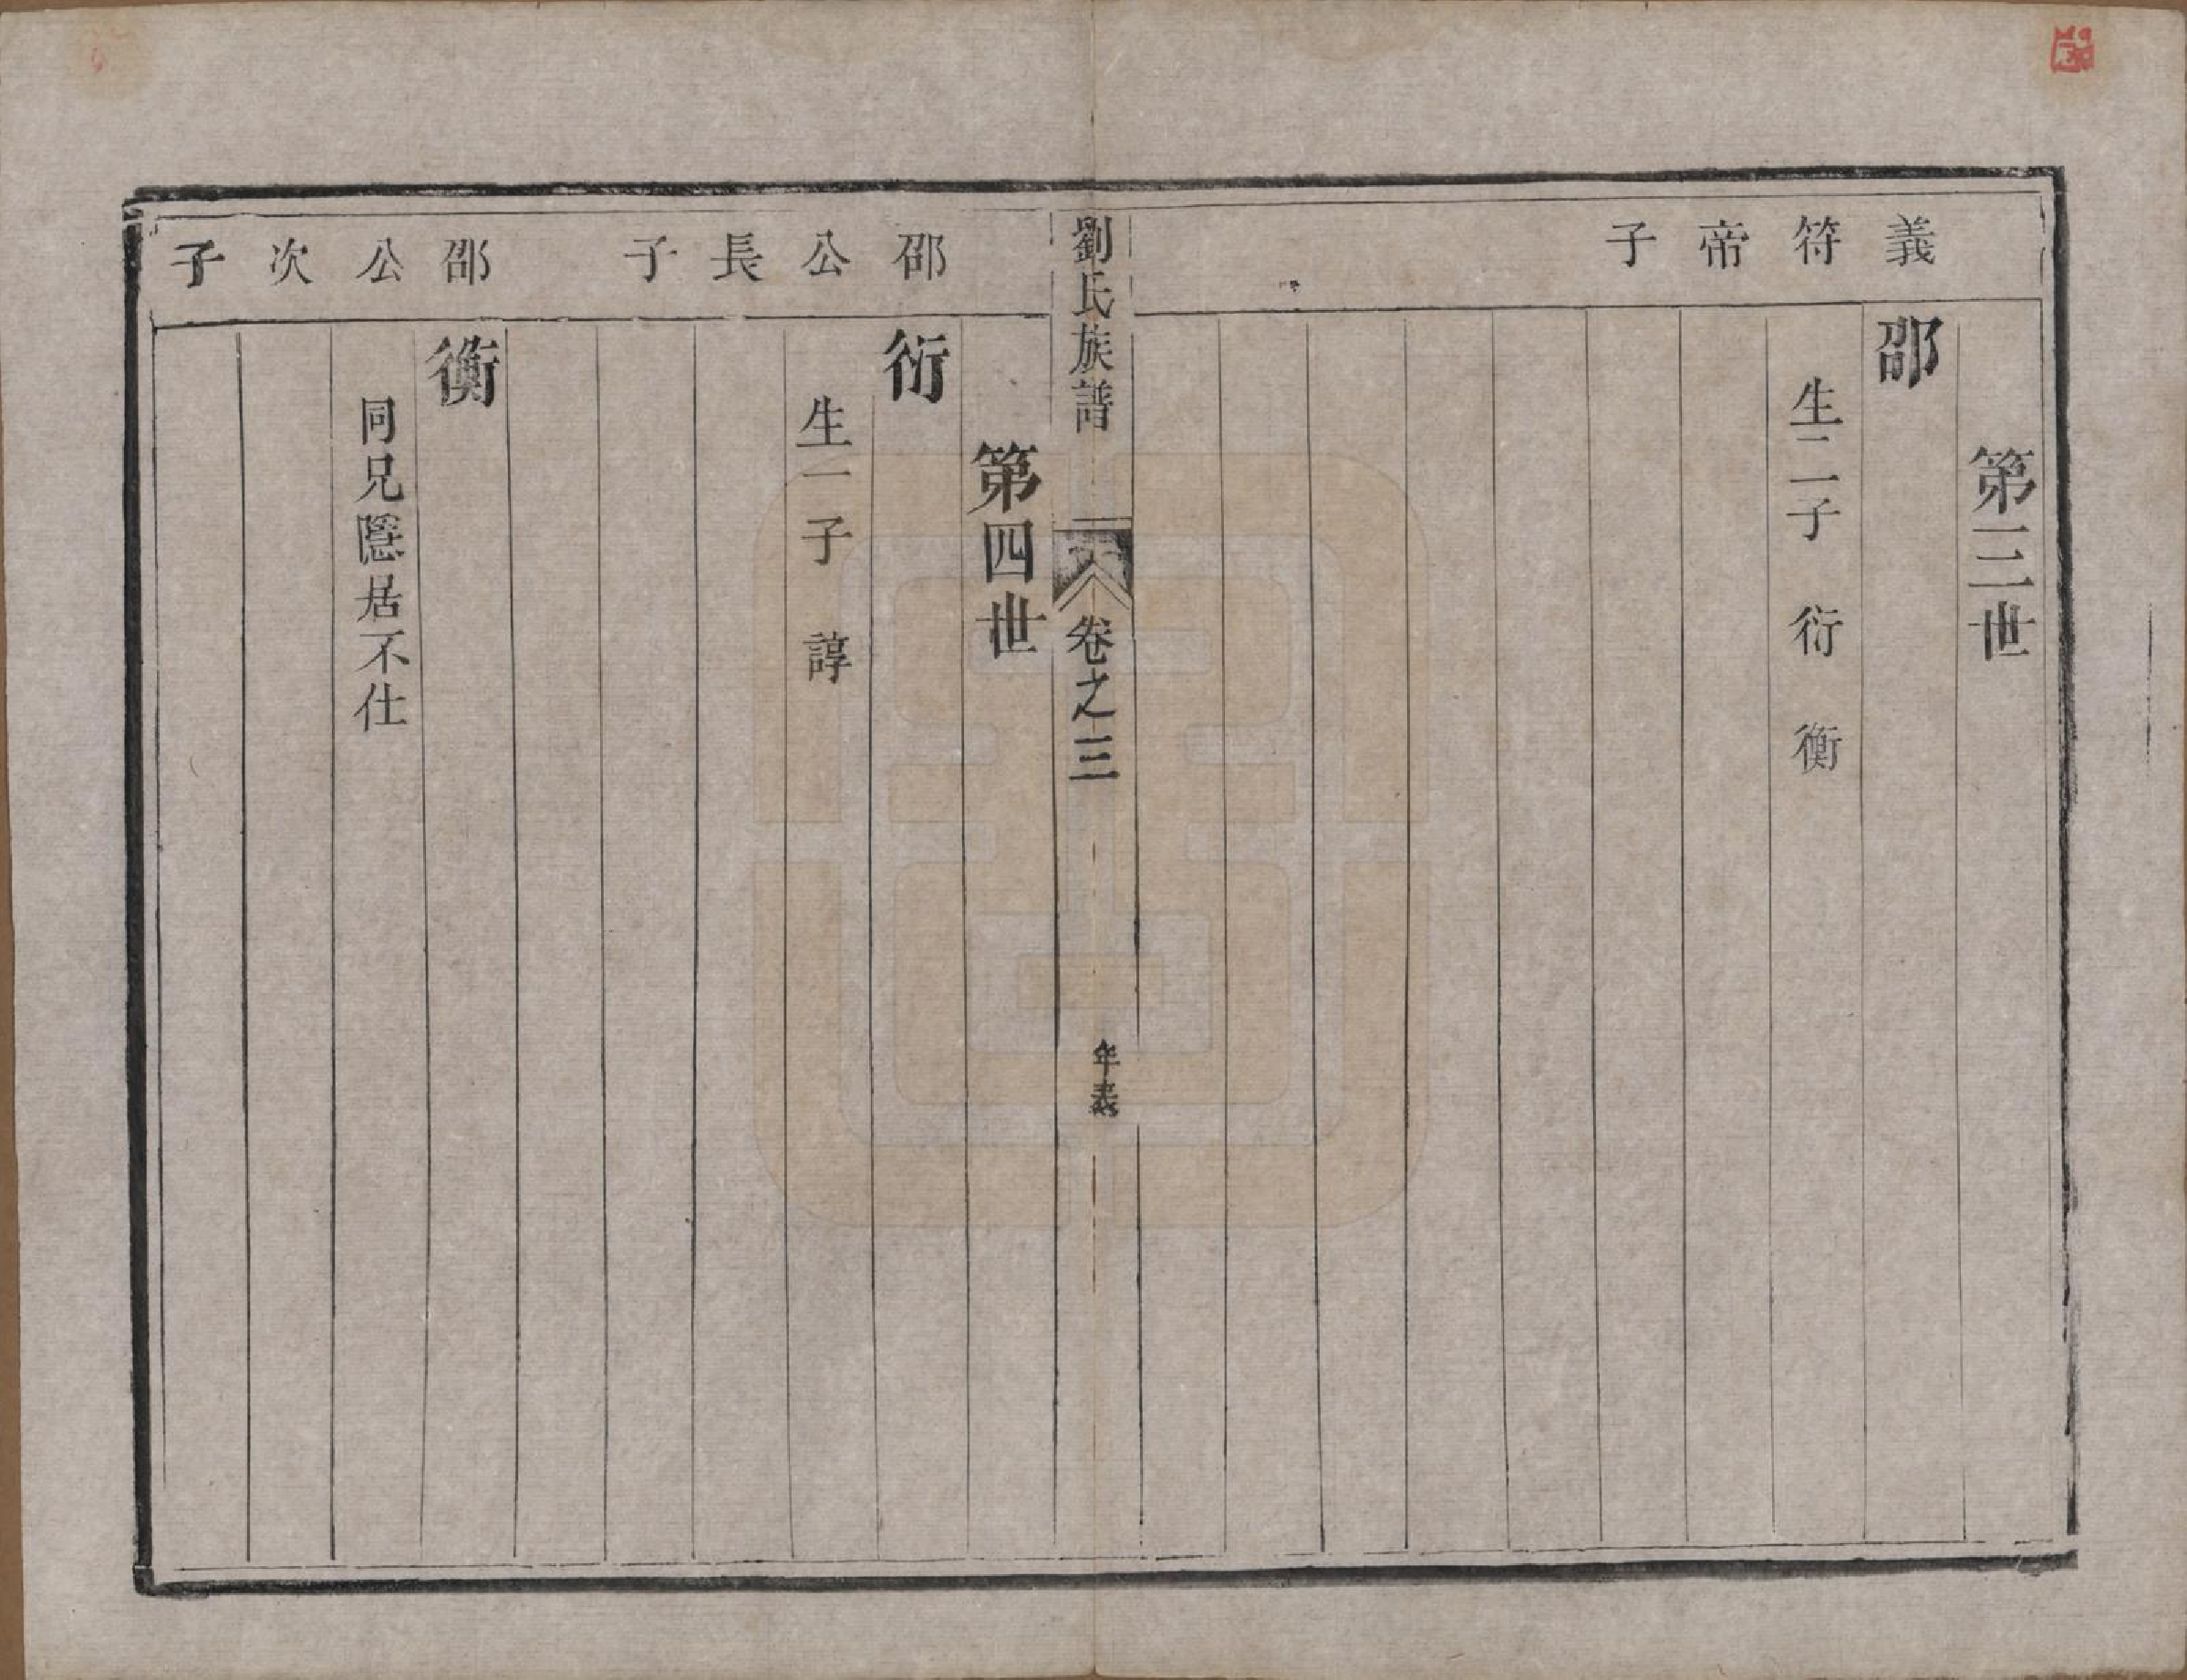 第三世
義符帝子
邵
生二子 衍 衡
劉氏族譜 卷之三 年表
第四世
邵公長子
衍
生一子 諄
邵公次子
衡
同兄隱居不仕